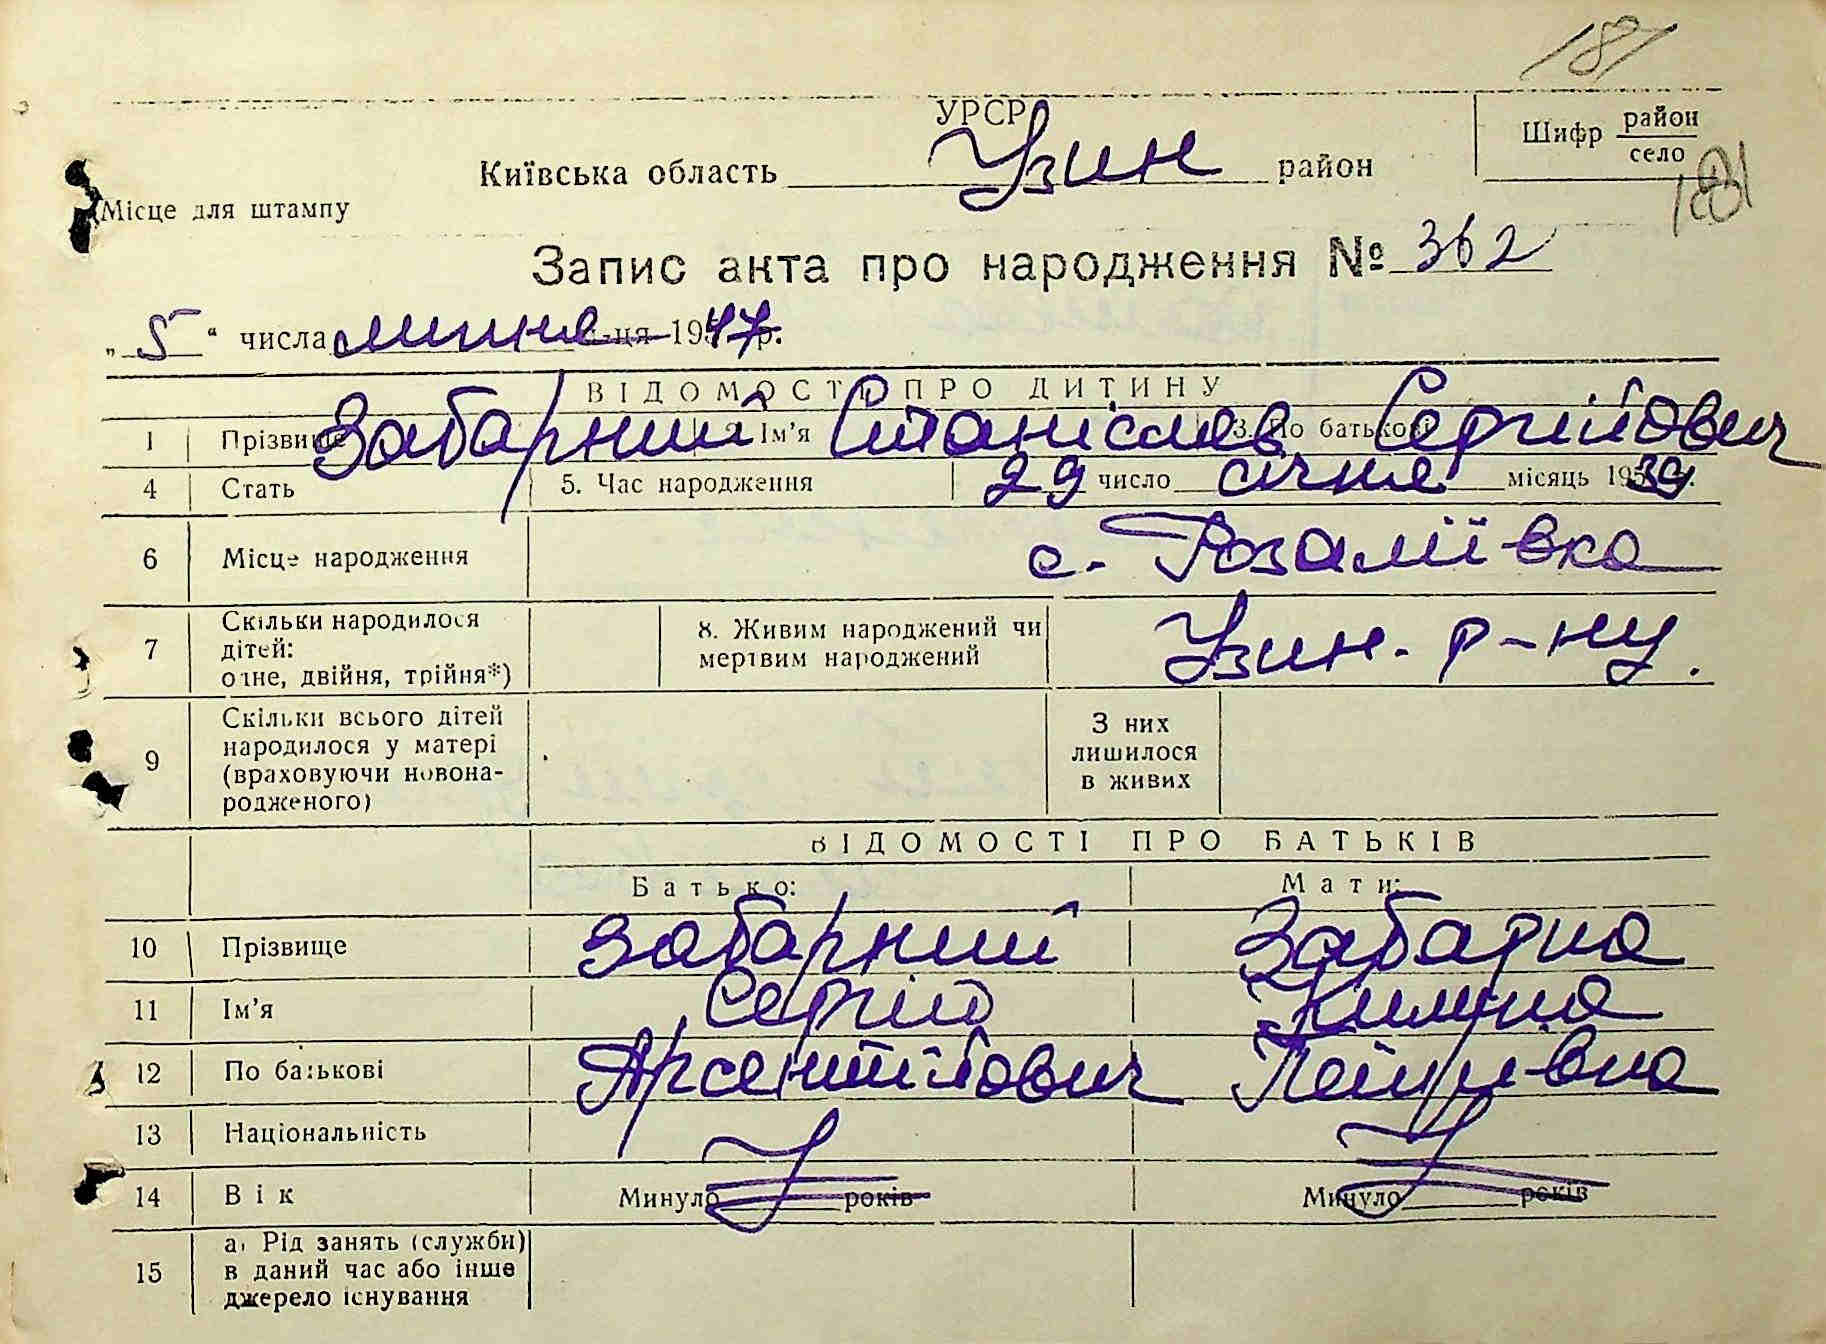 181
УРСР
Київська область Узин район
Шифр район
село
181
Місце для штампу
Запис акта про народження № 362
„ 5 “ числа липня м-ця 1947 р.
ВІДОМОСТІ ПРО ДИТИНУ
1 Прізвище Забарний 2. Ім'я Станіслав 3. По батькові Сергійович
4 Стать 5. Час народження 29 число січня місяць 1939 р.
6 Місце народження с. Розаліївка
Узин. р-ну.
7 Скільки народилося
дітей:
одне, двійня, трійня*)
8. Живим народжений чи
мертвим народжений
9 Скільки всього дітей
народилося у матері
(враховуючи новона-
родженого)
З них
лишилося
в живих
ВІДОМОСТІ ПРО БАТЬКІВ
Батько: Мати:
10 Прізвище Забарний Забарна
11 Ім'я Сергій Килина
12 По батькові Арсентійович Петрівна
13 Національність У У
14 Вік Минуло років Минуло років
15 а) Рід занять (служби)
в даний час або інше
джерело існування